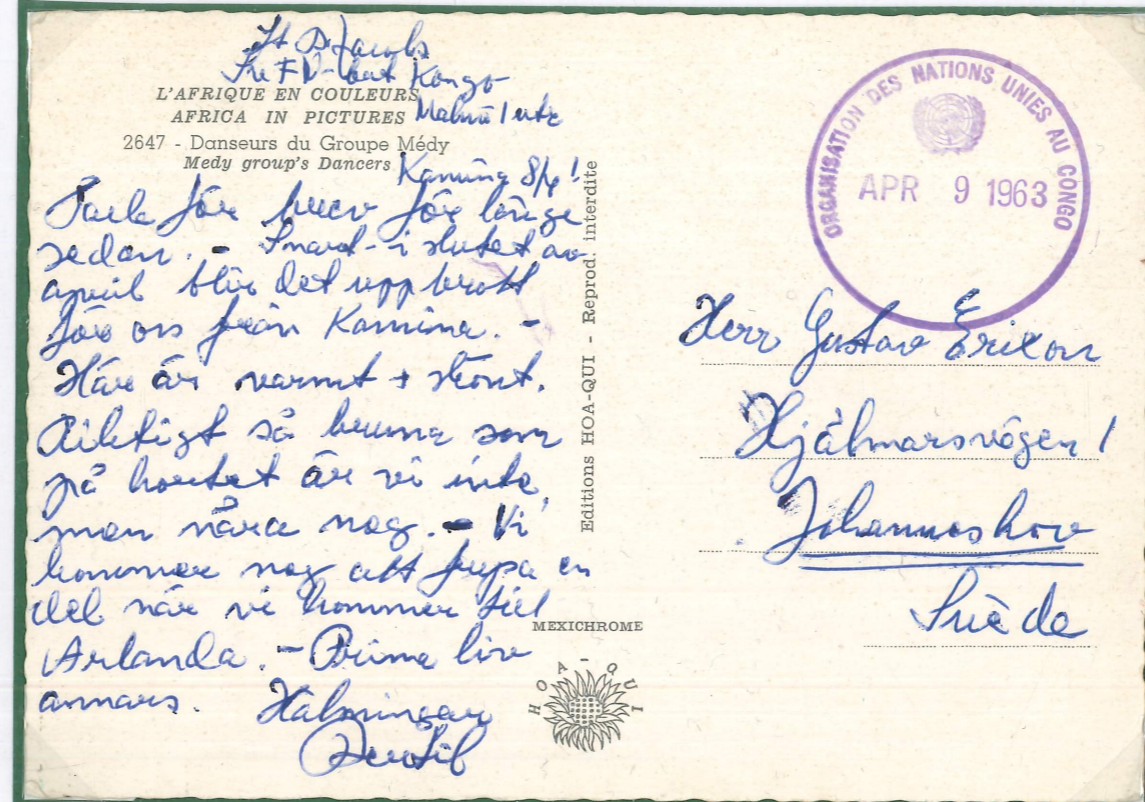 Lt B Jacobs
FN-bat Kongo
L'AFRIQUE EN COULEURS
AFRICA IN PICTURES
Malmö 1 utr
2647 - Danseurs du Groupe Médy
Medy group's Dancers
Kamina 8/4!
Tack för brev för länge
sedan. - Snart - i slutet av
april blir det uppbrott
för oss från Kamina. -
Här är varmt + skönt.
Riktigt så bruna som
på kortet är vi inte,
men nära nog. - Vi
kommer nog att frysa en
del när vi kommer till
Arlanda. - Prima liv
annars. Hälsningar
Bertil
Editions HOA-QUI - Reprod. interdite
MEXICHROME
HOA-QUI
ORGANISATION DES NATIONS UNIES AU CONGO
APR 9 1963
Herr Gustav Erixon
Hjälmarsvägen 1
Johanneshov
Suède